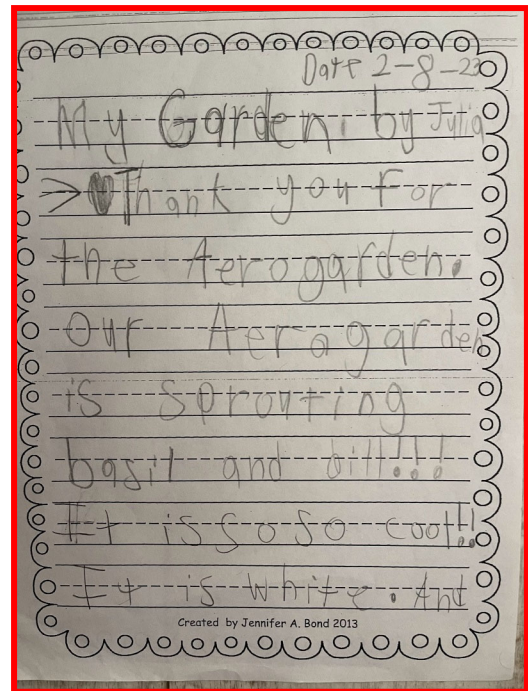 Date 2-8-23
My Garden. by Julia
Thank you For
the Aerogarden.
Our Aerogarden
is sprouting
basil and dill!!!
It is so so cool!!
It is white. And
Created by Jennifer A. Bond 2013